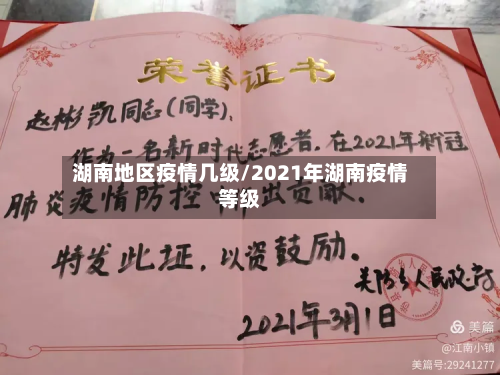 荣誉证书
赵彬凯同志(同学),
作为一名新时代志愿者,在2021年新冠
湖南地区疫情几级/2021年湖南疫情
等级
肺炎疫情防控中作出贡献.
特发此证,以资鼓励.
人民政府
2021年3月1日
美篇
@江南小镇
美篇号:29241277